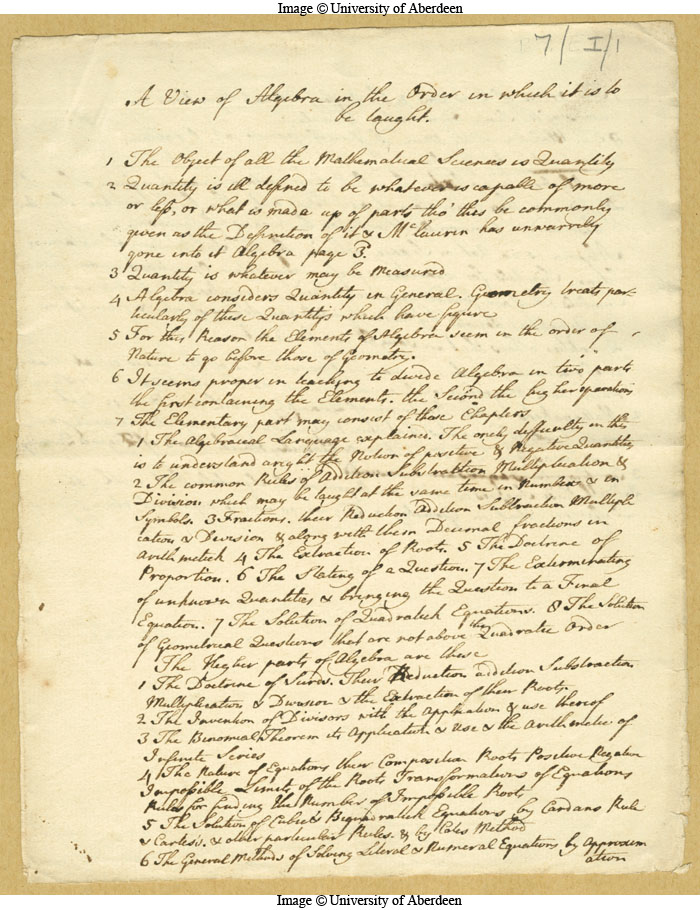 Image © University of Aberdeen
7/I/1
A View of Algebra in the Order in which it is to
be taught.
1 The Object of all the Mathematical Sciences is Quantity
2 Quantity is ill defined to be whatever is capable of more
or less, or what is made up of parts tho this be commonly
given as the Definition of it & McLaurin has unwarrily
gone into it Algebra page 3.
3 Quantity is whatever may be Measured
4 Algebra considers Quantity in General. Geometry treats par-
ticularly of these Quantitys which have figure
5 For this Reason the Elements of Algebra seem in the order of
Nature to go before those of Geometry.
6 It seems proper in teaching to divide Algebra in two parts
the first containing the Elements. the Second the higher operations
7 The Elementary part may consist of these Chapters
1 The Algebraical Language explained. The onely difficulty in this
is to understand aright the Notion of positive & Negative Quantitys
2 The common Rules of Addition Substraction Multiplication &
Division which may be taught at the same time in Numbers & in
Symbols. 3 Fractions. their Reduction Addition Substraction Multipli
cation & Division & along with them Decimal fractions in
Arithmetick 4 The Extraction of Roots. 5 The Doctrine of
Proportion. 6 The Stating of a Question. 7 The Exterminating
of unknown Quantities & bringing the Question to a Final
Equation. 7 The Solution of Quadratick Equations. 8 The Solution
of Geometrical Questions that are not above the Quadratic Order
The Higher parts of Algebra are these
1 The Doctrine of Surds. Their Reduction addition Substraction
Multiplication & Division & the Extraction of their Roots.
2 The Invention of Divisors with the Application & use thereof
3 The Binomial Theorem its Application & Use & the Arithmetic of
Infinite Series
4 The Nature of Equations their Composition Roots Positive Negative
Impossible Limits of the Roots Transformations of Equations
Rules for finding the Number of Impossible Roots
5 The Solution of Cubic & Biquadratick Equations by Cardans Rule
& Cartes's. & other particular Rules. & by Cotes Method
6 The General Methods of Solving Literal & Numeral Equations by Approxim
ation
Image © University of Aberdeen